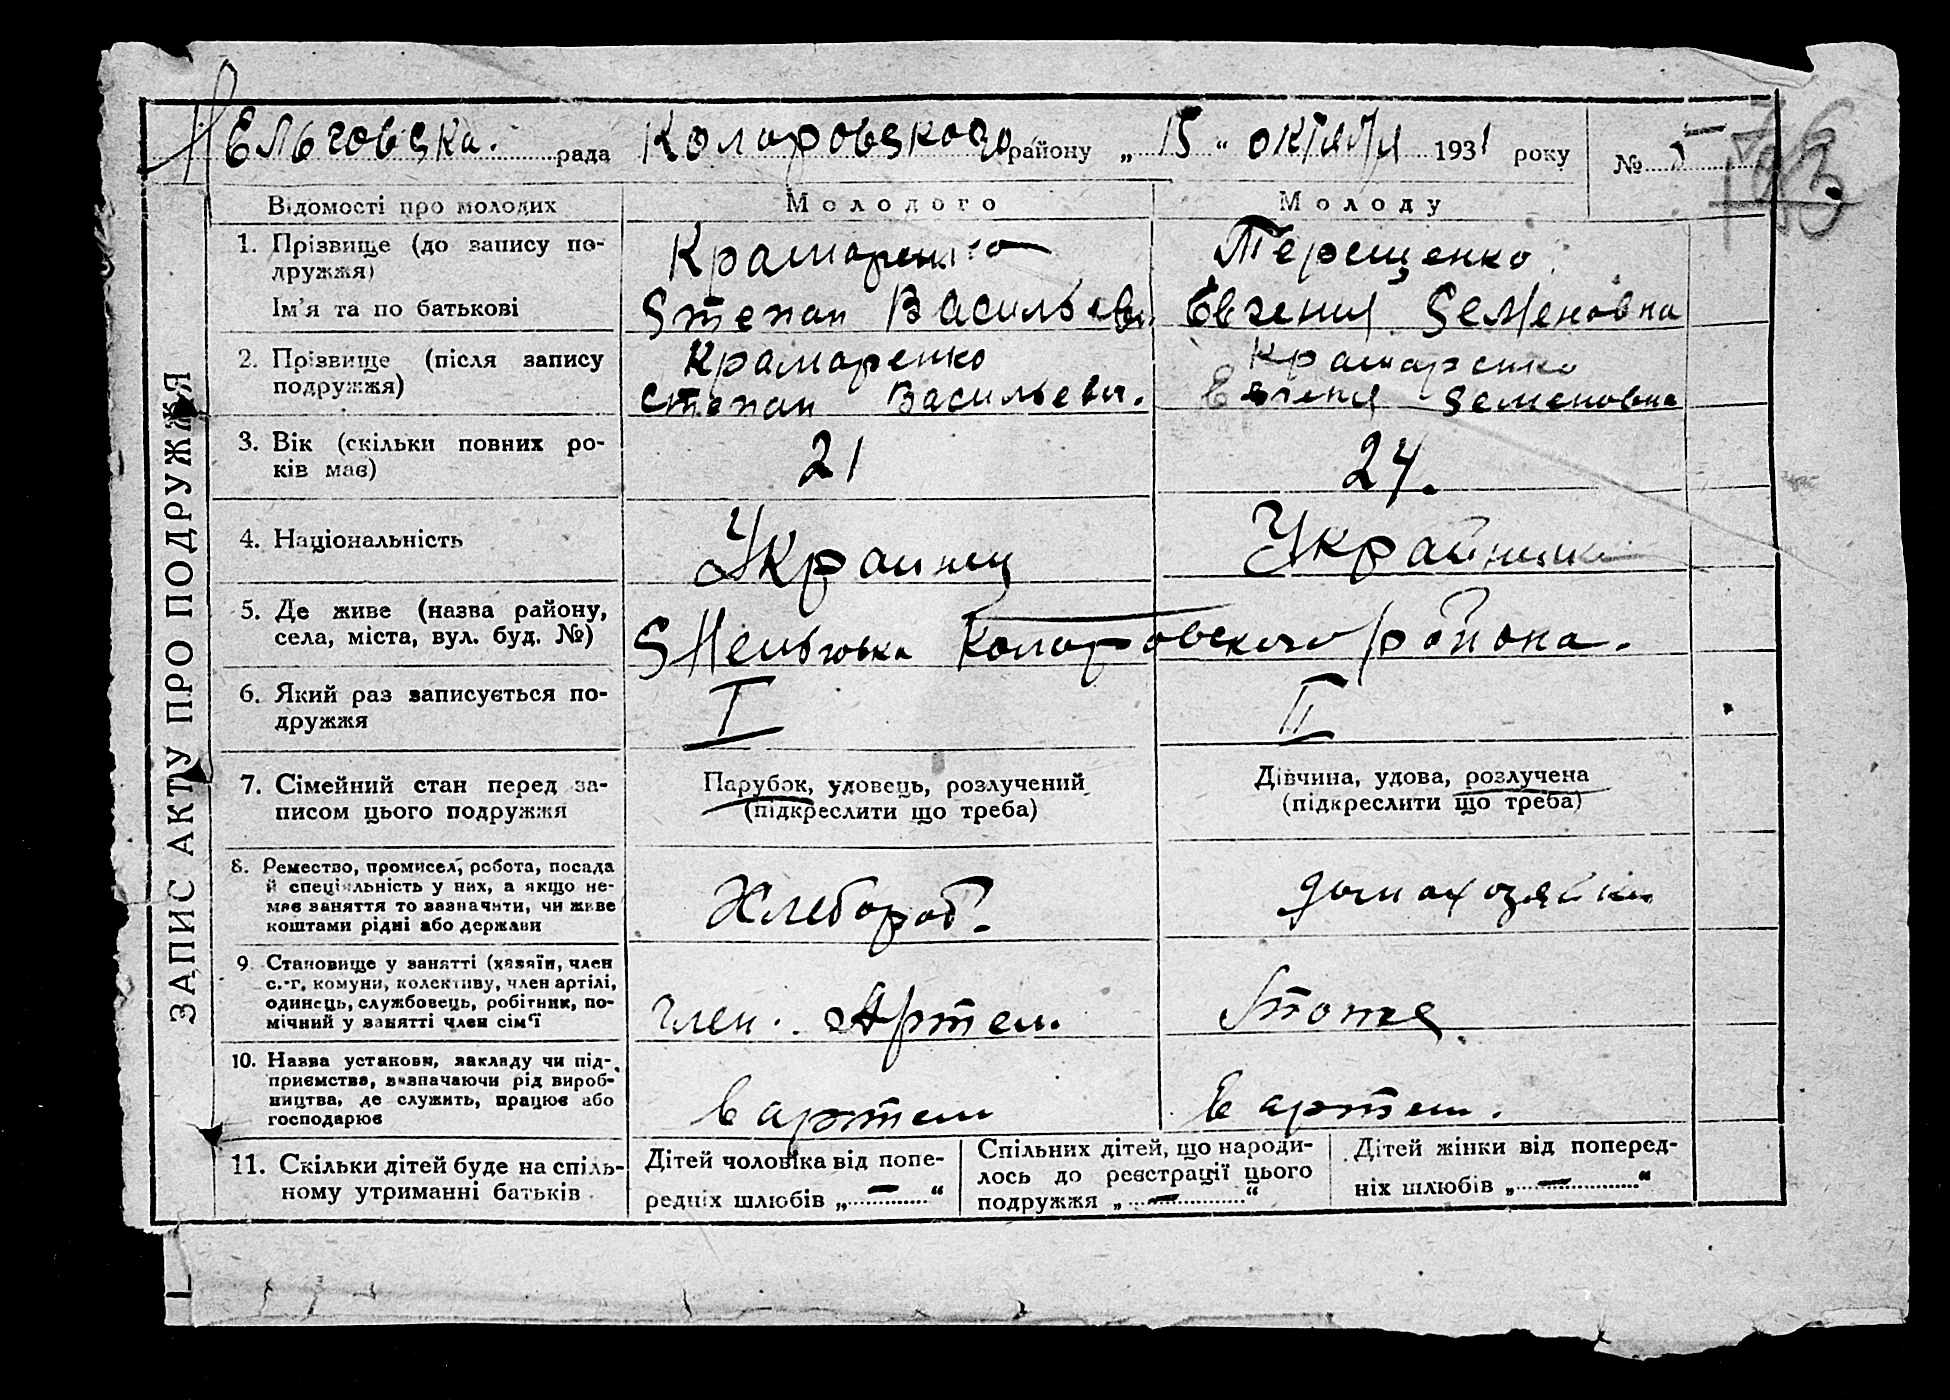 Ельговска. рада Коларовского району „ 15 “ октября 1931 року № 5
ЗАПИС АКТУ ПРО ПОДРУЖЖЯ
Відомості про молодих Молодого Молоду
1. Прізвище (до запису по-
дружжя)
Крамаренко Терещенко
Ім'я та по батькові
Степан Васильеви. Евгения Семеновна
2. Прізвище (після запису
подружжя)
Крамаренко Крамаренко
Степан Васильевич. Евгеня Семеновна
3. Вік (скільки повних ро-
ків має)
21 24.
4. Національність
Украинец Украйнка
5. Де живе (назва району,
села, міста, вул. буд. №)
Коларовского района.
6. Який раз записується по-
дружжя
I II
7. Сімейний стан перед за-
писом цього подружжя
Парубок, удовець, розлучений
(підкреслити що треба)
Дівчина, удова, розлучена
(підкреслити що треба)
8. Ремество, промисел, робота, посада
й спеціяльність у них, а якщо не-
має заняття то зазначити, чи живе
коштами рідні або держави
Хлебороб. домохозяйка
9. Становище у занятті (хазяїн, член
с.-г. комуни, колективу, член артілі,
одинець, службовець, робітник, по-
мічний у занятті член сім'ї
член. Артели. тоже.
10. Назва установи, закладу чи під-
приємства, зазначаючи рід вироб-
ництва, де служить, працює або
господарює
в артели в артели.
11. Скільки дітей буде на спіль-
ному утриманні батьків
Дітей чоловіка від попе-
редніх шлюбів „ — “
Спільних дітей, що народи-
лось до реєстрації цього
подружжя „ — “
Дітей жінки від поперед-
ніх шлюбів „ — “